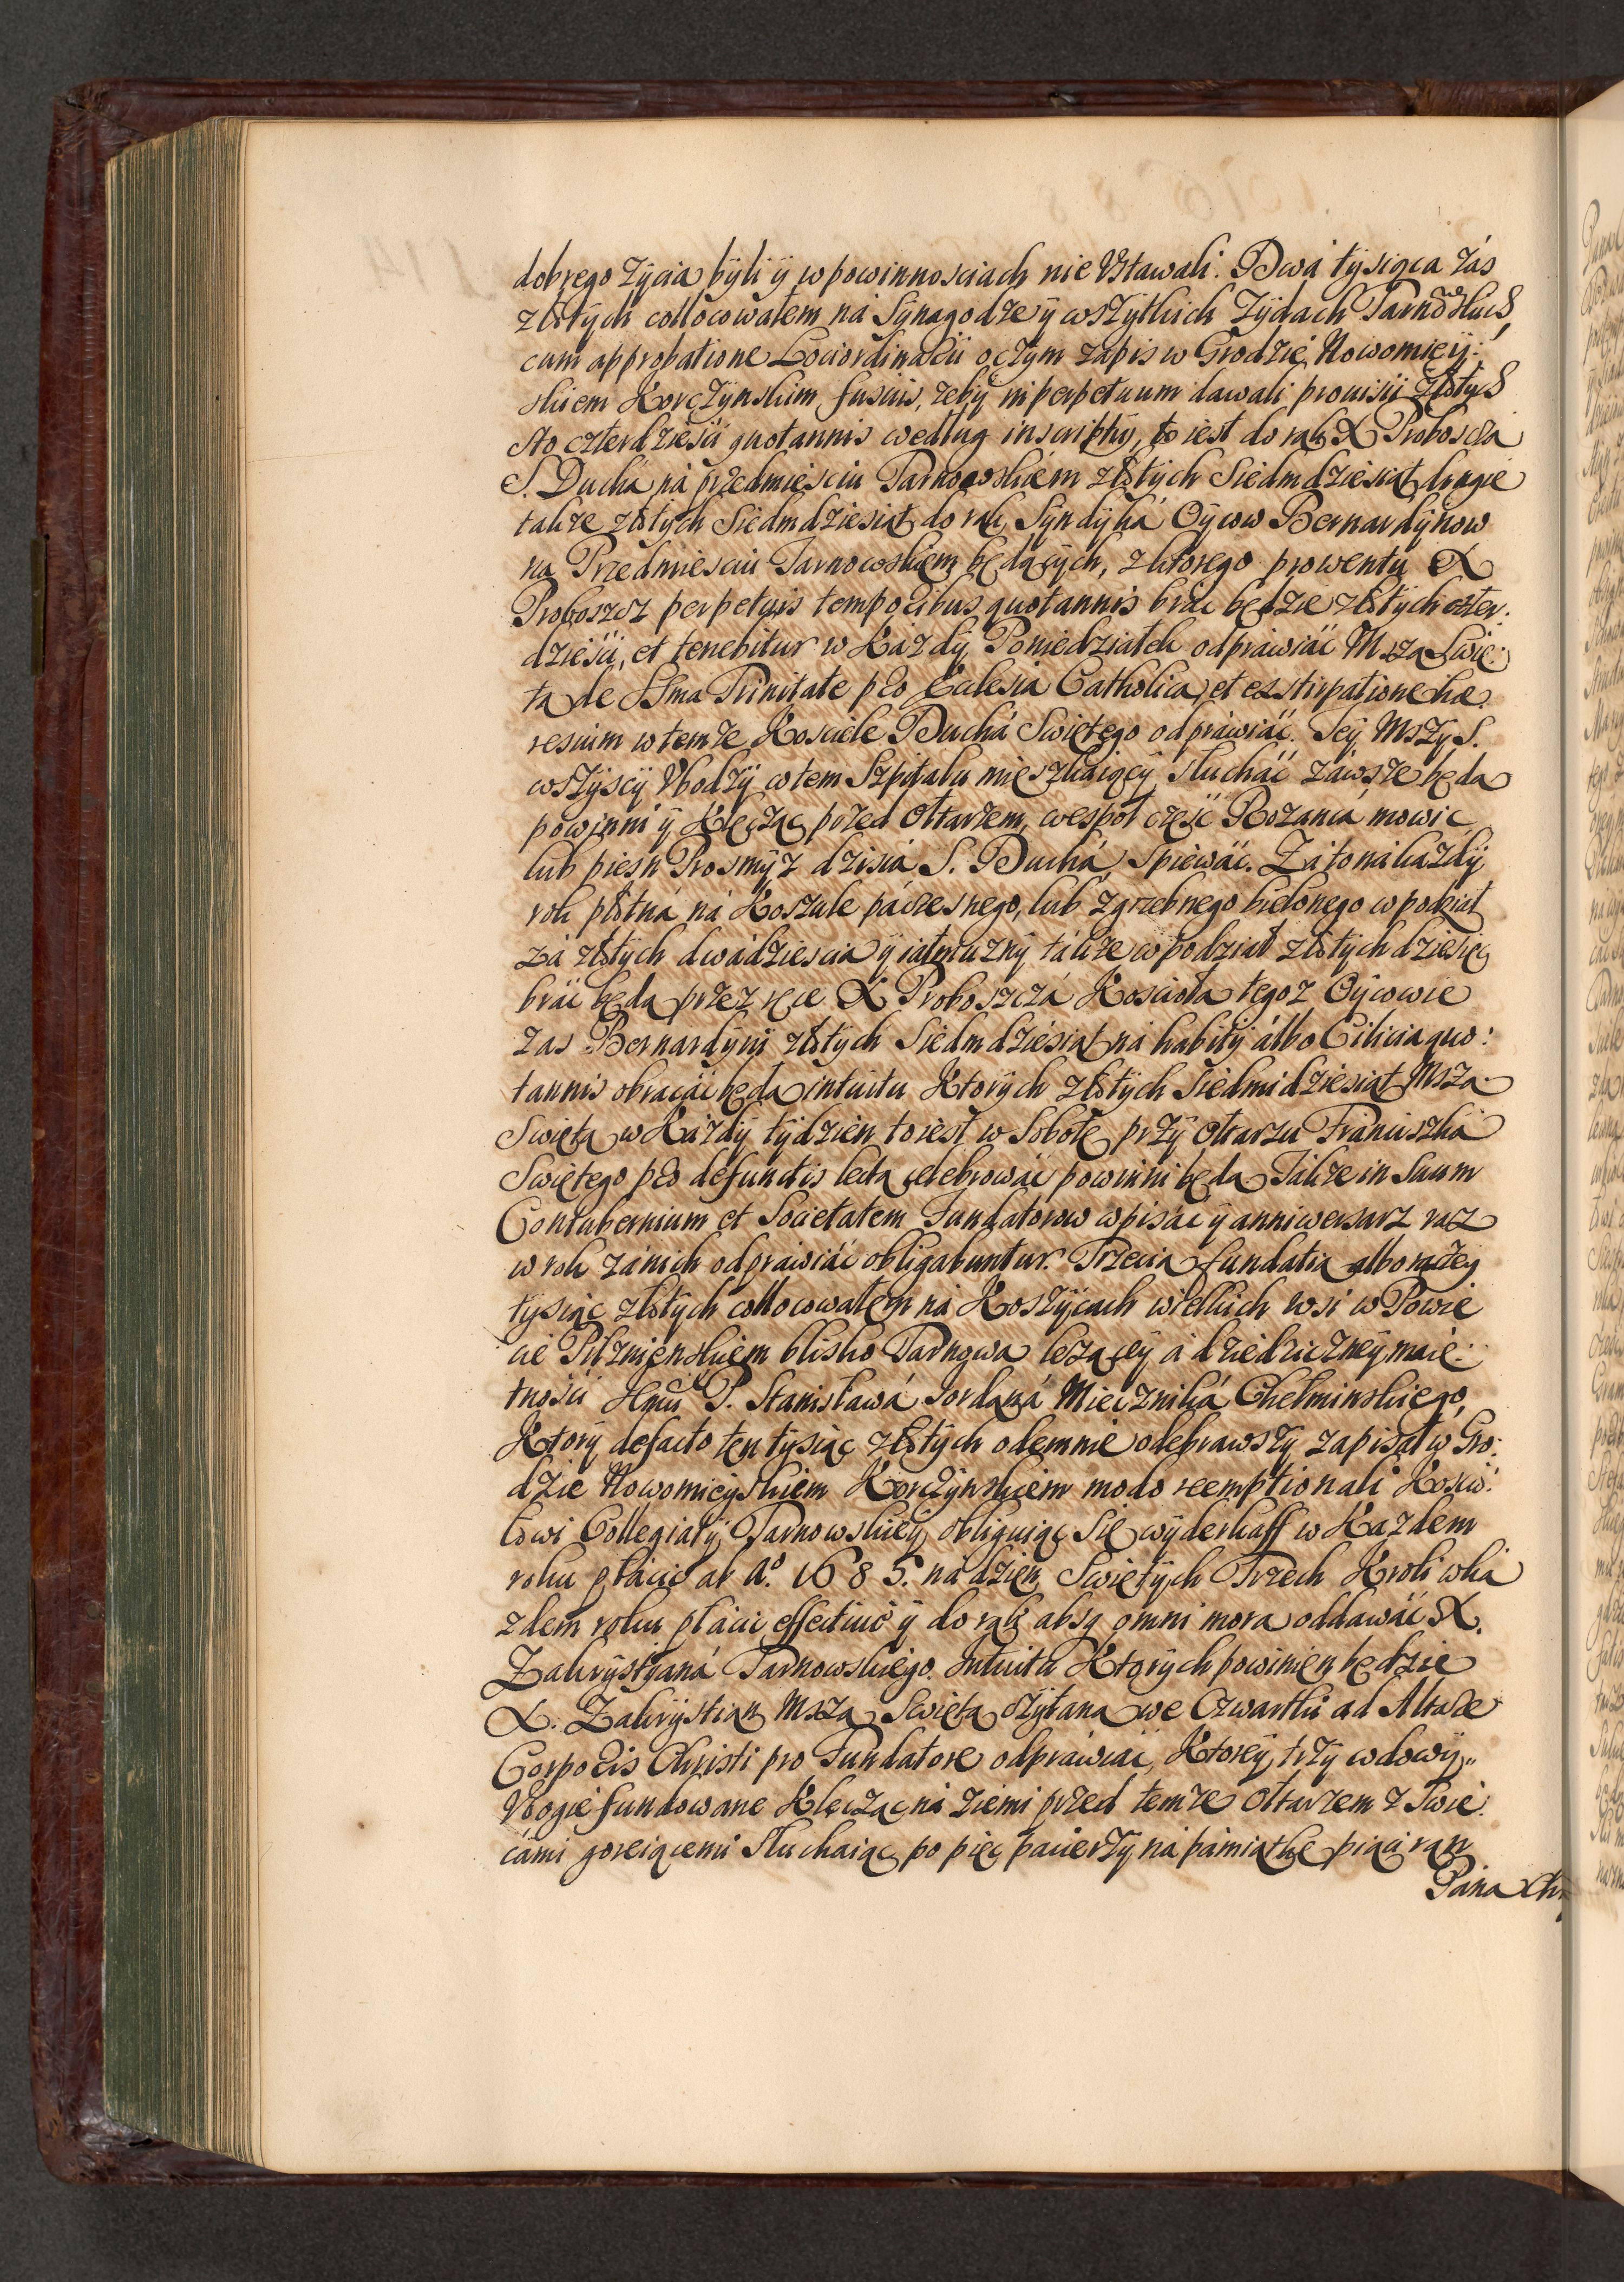 dobrego życia byli y w powinnosciach nie Vstawali. Dwa tysiąca zás
złotych collocowałem ná Synagodze y wszytkich Zydach Tarnowskich,
cum approbatione Lociordinarii o czym zapis w Grodzie Nowomiey:
skiem Korczynskim fusius, żeby in perpetuum dawali prouisii złotych
sto czterdzieści quotannis według inscriptij, to iest do rąk X Proboscza
S. Duchá ná przedmiesciu Tarnowskiem złotych Siedmdziesiąt drugie
takze złotych Siedmdziesiąt do rąk Syndyká Oycow Bernardynow
na Przedmiesciu Tarnowskiem będących, z ktorego prowentu X
Proboszcz perpetuis temporibus quotannis brac będzie złotych czter:
dzieści, et tenebitur w Każdy Poniedziałek odpráwiáć Mszą Swię:
tą de SSma Trinitate pro Ecclesia Catholica, et exstirpatione hæ:
resium w temze Kosciele Duchá Swiętego odpráwiáć. Tey Mszy S.
wszyscy Vbodzy w tem Szpitalu mięszkaiący słucháć záwsze będą
powinni y Klęcząc przed Ołtarzem, wespoł część Rożanca mowic
lub piesn Prosmyz dzisiá S. Duchá, spiewáć. Zá to ná każdy
rok płotná ná Koszule páczesnego, lub zgrzebnego bielonego w podział
zá złotych dwádziescia y iałmuzny tákże w podział złotych dziesięc
bráć będą przez ręce X Proboszczá Kosciołá tegoz Oycowie
zas Bernardyni złotych Siedmdziesiąt ná habity álbo Cilicia quo:
tannis obracáć będą intuitu Ktorych złotych Siedmidziesiąt Mszą
Swiętą w Káżdy tydzien to iest w Sobotę przy ołtarzu Fránciszka
Swiętego pro defunctis lectą celebrowáć powinni będą Takze in Suum
Contubernium et Societatem Fundatorow wpisáć y anniwersarz raz
w rok zá nich odpráwiáć obligabuntur. Trzecia fundatia albo raczey
tysiąc złotych collocowałem ná Koszycach wielkich wsi w Powie
cie Pilznienskiem blisko Tarnowa leżącey á dziedziczney maię:
tności P. Stanisławá Jordaná Miecznika Chełminskiego,
Ktory defacto ten tysiąc złotych odemnie odebrawszy zapisał w Gro:
dzie Nowomieyskiem Korczynskiem modo reemptionali Koscio:
łowi Collegiaty Tarnowskiey obliguiąc się wyderkaff w Każdem
roku płácic ab Aº. 1685. ná dzien Swiętych Trzech Kroli w ka
zdem roku płácic effectiuè y do rąk absq omni mora oddawáć X.
Zakrystyaná Tarnowskiego. Intuitu Ktorych powinien będzie
X. Zakrystian Mszą Swiętą czytaną we Czwartki ad Altare
Corporis Christi pro Fundatore odpráwiáć, Ktorey trzy wdowy
Vbogie fundowane Klęcząc ná ziemi przed temze ołtarzem z świe:
cámi goreiącemi słuchaiąc po pięć pacierzy ná pámiątkę piąci ran
Pána